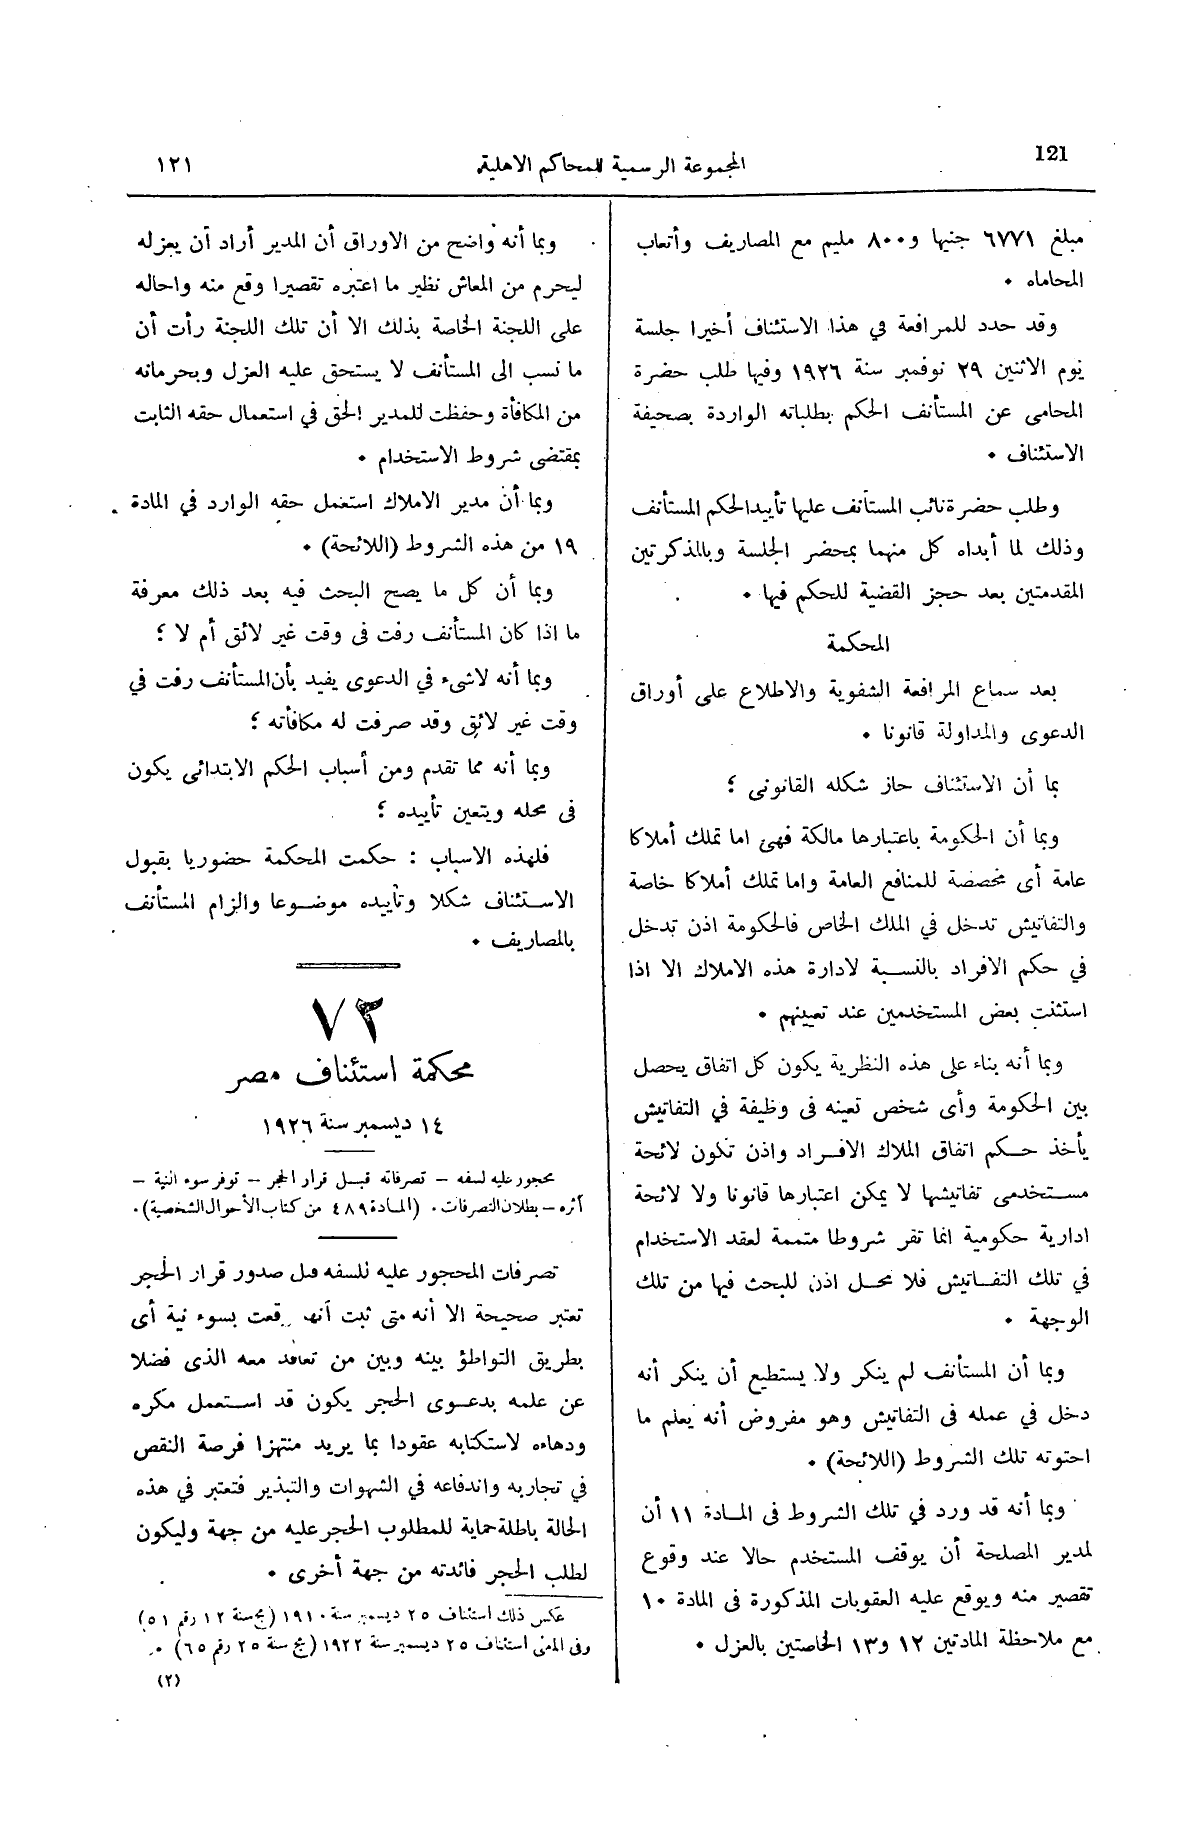 121
المجموعة الرسمية للمحاكم الاهلية
١٢١
مبلغ ٦٧٧١ جنيها و٨٠٠ مليم مع المصاريف وأتعاب
المحاماه .
وقد حدد للمرافعة في هذا الاستئناف أخيرا جلسة
يوم الاثنين ٢٩ نوفمبر سنة ١٩٢٦ وفيها طلب حضرة
المحامى عن المستأنف الحكم بطلباته الواردة بصحيفة
الاستئناف .
وطلب حضرة نائب المستأنف عليها تأييد الحكم المستأنف
وذلك لما أبداه كل منهما بمحضر الجلسة وبالمذكرتين
المقدمتين بعد حجز القضية للحكم فيها .
المحكمة
بعد سماع المرافعة الشفوية والاطلاع على أوراق
الدعوى والمداولة قانونا .
بما أن الاستئناف حاز شكله القانونى ؛
وبما أن الحكومة باعتبارها مالكة فهى اما تملك أملاكا
عامة أى مخصصة للمنافع العامة واما تملك أملاكا خاصة
والتفاتيش تدخل في الملك الخاص فالحكومة اذن تدخل
في حكم الافراد بالنسبة لادارة هذه الاملاك الا اذا
استثنت بعض المستخدمين عند تعيينهم .
وبما أنه بناء على هذه النظرية يكون كل اتفاق يحصل
بين الحكومة وأى شخص تعينه فى وظيفة في التفاتيش
يأخذ حكم اتفاق الملاك الافراد واذن تكون لائحة
مستخدمى تفاتيشها لا يمكن اعتبارها قانونا ولا لائحة
ادارية حكومية انما تقر شروطا متممة لعقد الاستخدام
في تلك التفاتيش فلا محل اذن للبحث فيها من تلك
الوجهة .
وبما أن المستأنف لم ينكر ولا يستطيع أن ينكر أنه
دخل في عمله فى التفاتيش وهو مفروض أنه يعلم ما
احتوته تلك الشروط (اللائحة) .
وبما أنه قد ورد في تلك الشروط فى المادة ١١ أن
لمدير المصلحة أن يوقف المستخدم حالا عند وقوع
تقصير منه ويوقع عليه العقوبات المذكورة فى المادة ١٠
مع ملاحظة المادتين ١٢ و١٣ الخاصتين بالعزل .
وبما أنه واضح من الاوراق أن المدير أراد أن يعزله
ليحرم من المعاش نظير ما اعتبره تقصيرا وقع منه واحاله
على اللجنة الخاصة بذلك الا أن تلك اللجنة رأت أن
ما نسب الى المستأنف لا يستحق عليه العزل وبحرمانه
من المكافأة وحفظت للمدير الحق في استعمال حقه الثابت
بمقتضى شروط الاستخدام .
وبما أن مدير الاملاك استعمل حقه الوارد في المادة
١٩ من هذه الشروط (اللائحة) .
وبما أن كل ما يصح البحث فيه بعد ذلك معرفة
ما اذا كان المستأنف رفت فى وقت غير لائق أم لا ؛
وبما أنه لاشىء في الدعوى يفيد بأن المستأنف رفت في
وقت غير لائق وقد صرفت له مكافأته ؛
وبما أنه مما تقدم ومن أسباب الحكم الابتدائى يكون
فى محله ويتعين تأييده ؛
فلهذه الاسباب : حكمت المحكمة حضوريا بقبول
الاستئناف شكلا وتأييده موضوعا والزام المستأنف
بالمصاريف .
٧٣
محكمة استئناف مصر
١٤ ديسمبر سنة ١٩٢٦
محجور عليه لسفه – تصرفاته قبل قرار الحجر – توفر سوء النية –
أثره – بطلان التصرفات . (المادة ٤٨٩ من كتاب الأحوال الشخصية) .
تصرفات المحجور عليه للسفه قبل صدور قرار الحجر
تعتبر صحيحة الا أنه متى ثبت أنها وقعت بسوء نية أى
بطريق التواطؤ بينه وبين من تعاقد معه الذى فضلا
عن علمه بدعوى الحجر يكون قد استعمل مكره
ودهاءه لاستكتابه عقودا بما يريد منتهزا فرصة النقص
في تجاربه واندفاعه في الشهوات والتبذير فتعتبر في هذه
الحالة باطلة حماية للمطلوب الحجر عليه من جهة وليكون
لطلب الحجر فائدته من جهة أخرى .
عكس ذلك استئناف ٢٥ ديسمبر سنة ١٩١٠ (مج سنة ١٢ رقم ٥١)
وفى المعنى استئناف ٢٥ ديسمبر سنة ١٩٢٢ (مج سنة ٢٥ رقم ٦٥) .
(٢)